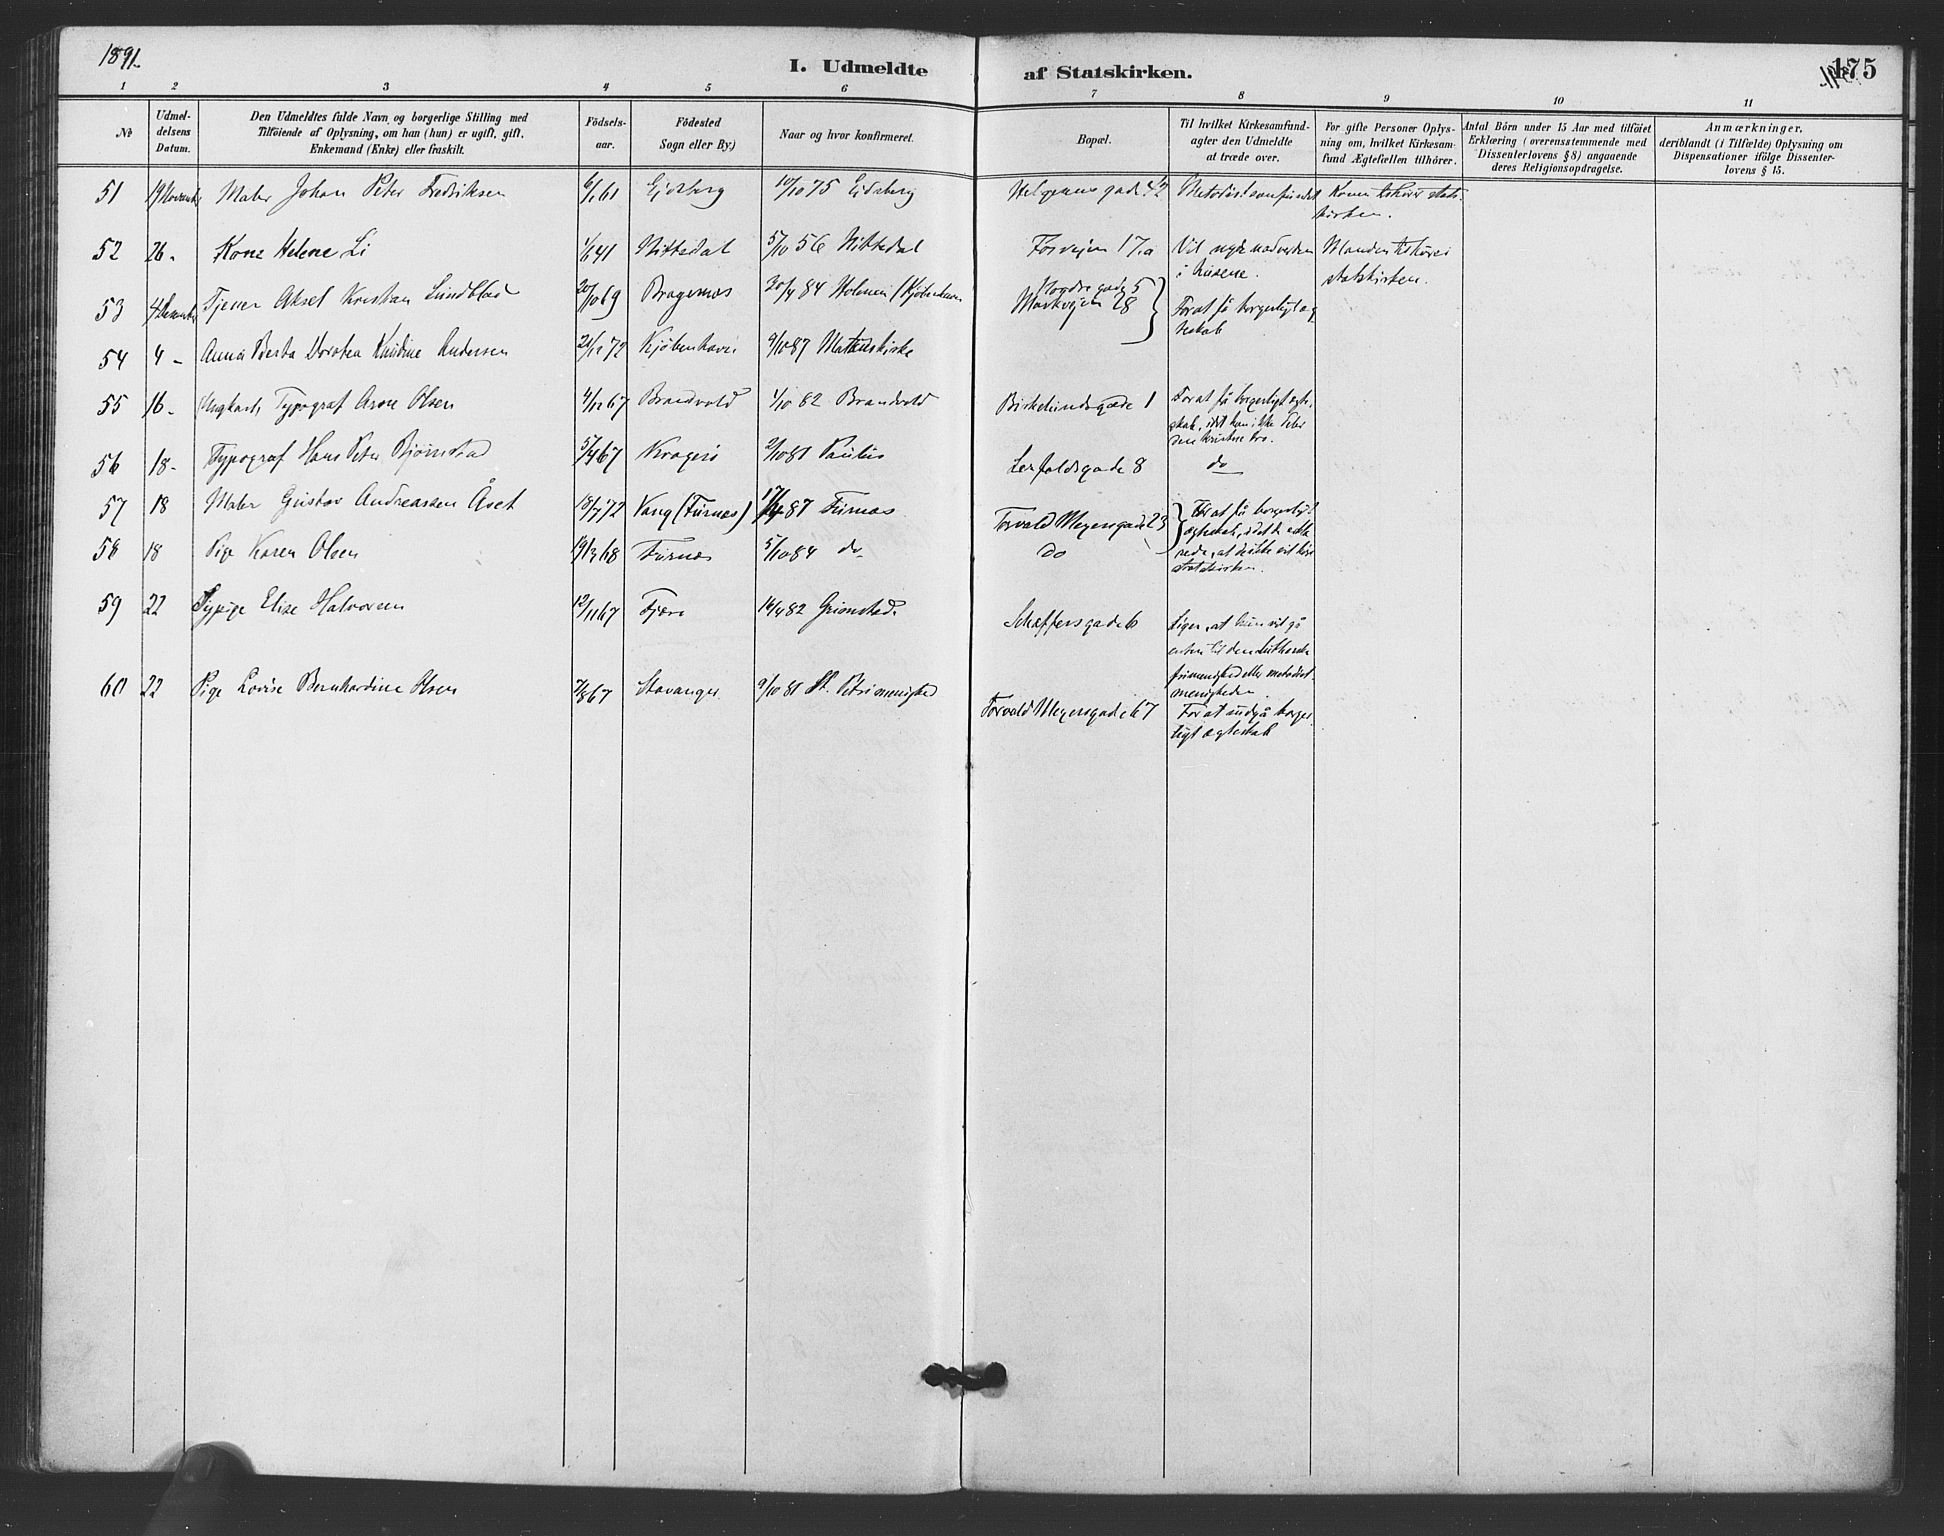 1891.
I. Udmeldte af Statskirken.
175
1 2 3 4 5 6 7 8 9 10 11
No
Udmel-
delsens
Datum.
Den Udmeldtes fulde Navn og borgerlige Stilling med
Tilföiende af Oplysning, om han (hun) er ugift, gift,
Enkemand (Enke) eller fraskilt.
Födsels-
aar.
Födested
Sogn eller By.)
Naar og hvor konfirmeret.
Bopæl.
Til hvilket Kirkesamfund
agter den Udmeldte
at træde over.
For gifte Personer Oplys-
ning om, hvilket Kirkesam-
fund Ægtefællen tilhörer.
Antal Börn under 15 Aar med tilföiet
Erklæring (overensstemmende med
Dissenterlovens § 8) angaaende
deres Religionsopdragelse.
Anmærkninger,
deriblandt (i Tilfælde) Oplysning om
Dispensationer ifölge Dissenter-
lovens § 15.
51 19 November Maler Johan Peter Fredriksen 6/1 61 Ejdsberg 10/10 75 Ejdsberg Helgesens gade 42 Metodistsamfundet Konen tilhører stats-
kirken.
52 26 - Kone Helene Li 1/6 41 Nittedal 5/10 56 Nittedal Fossvejen 17.a Vil nyde nadverden Manden tilhører
i husene. statskirken.
53 4 Desember Tjener Aksel Kristian Lundblad 20/10 69 Bragernæs 20/4 84 Holmen (Kjøbenhavn Nordregade 5
Markvejen 28 For at få borgerligt æg-
teskab
54 4 - Anna Berta Dorotea Kristine Andersen 21/12 72 Kjøbenhavn 9/10 87 Matteuskirke
55 16 - Ungkarl, Typograf Arne Olsen 4/12 67 Brandvold 1/10 82 Brandvold Birkelundsgade 1 For at få borgerligt ægte-
skab, idet han ikke deler
den kristne tro.
56 18 - Typograf Hans Peter Bjørnstad 5/4 67 Kragerø 2/10 81 Paulus Lerfaldsgade 8 do
57 18 Maler Gustav Andreassen Åset 18/7 72 Vang (Furnæs) 17/4 87 Furnæs Torvald Meyersgade 23 For at få borgerligt
ægteskab, idet de
58 18 Pige Karen Olsen 19/3 68 Furnæs 5/10 84 do. do
rede, at de ikke vil
statskirken.
59 22 Sypige Elise Halvorsen 12/11 67 Fjære 16/4 82 Grimstad. Schæffersgade 6 Siger, at hun vil gå
enten til den lutherske
frimenighed eller metodist-
menigheden
60 22 Pige Lovise Bernhardine Olsen 7/8 67 Stavanger 9/10 81 St. Petri menighed Torvald Meyersgade 67 For at indgå borger-
ligt ægteskab